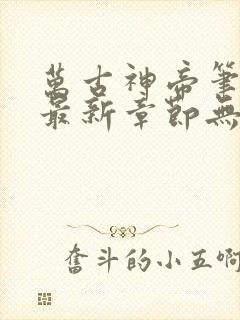 萬古神帝筆
最新章節無
奮斗的小五啊